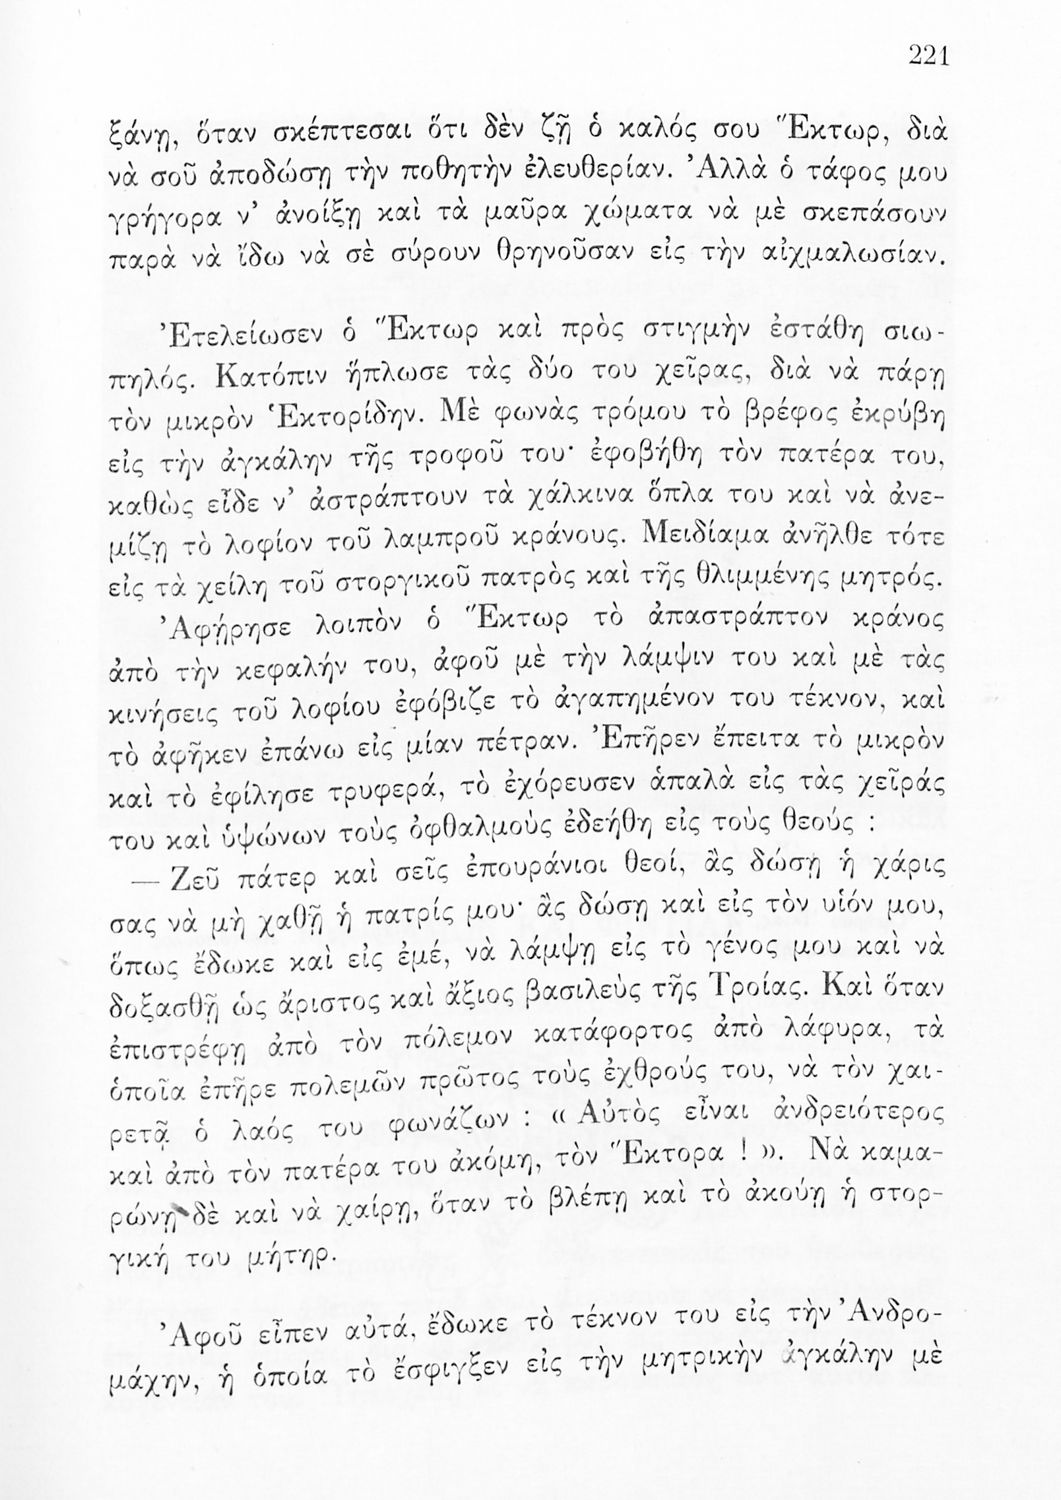 221
ξάνῃ, ὅταν σκέπτεσαι ὅτι δὲν ζῇ ὁ καλός σου Ἕκτωρ, διὰ
νὰ σοῦ ἀποδώσῃ τὴν ποθητὴν ἐλευθερίαν. Ἀλλὰ ὁ τάφος μου
γρήγορα ν’ ἀνοίξῃ καὶ τὰ μαῦρα χώματα νὰ μὲ σκεπάσουν
παρὰ νὰ ἴδω νὰ σὲ σύρουν θρηνοῦσαν εἰς τὴν αἰχμαλωσίαν.
Ἐτελείωσεν ὁ Ἕκτωρ καὶ πρὸς στιγμὴν ἐστάθη σιω-
πηλός. Κατόπιν ἥπλωσε τὰς δύο του χεῖρας, διὰ νὰ πάρῃ
τὸν μικρὸν Ἑκτορίδην. Μὲ φωνὰς τρόμου τὸ βρέφος ἐκρύβη
εἰς τὴν ἀγκάλην τῆς τροφοῦ του· ἐφοβήθη τὸν πατέρα του,
καθὼς εἶδε ν’ ἀστράπτουν τὰ χάλκινα ὅπλα του καὶ νὰ ἀνε-
μίζῃ τὸ λοφίον τοῦ λαμπροῦ κράνους. Μειδίαμα ἀνῆλθε τότε
εἰς τὰ χείλη τοῦ στοργικοῦ πατρὸς καὶ τῆς θλιμμένης μητρός.
Ἀφῄρησε λοιπὸν ὁ Ἕκτωρ τὸ ἀπαστράπτον κράνος
ἀπὸ τὴν κεφαλήν του, ἀφοῦ μὲ τὴν λάμψιν του καὶ μὲ τὰς
κινήσεις τοῦ λοφίου ἐφόβιζε τὸ ἀγαπημένον του τέκνον, καὶ
τὸ ἀφῆκεν ἐπάνω εἰς μίαν πέτραν. Ἐπῆρεν ἔπειτα τὸ μικρὸν
καὶ τὸ ἐφίλησε τρυφερά, τὸ ἐχόρευσεν ἁπαλὰ εἰς τὰς χεῖράς
του καὶ ὑψώνων τοὺς ὀφθαλμοὺς ἐδεήθη εἰς τοὺς θεούς :
— Ζεῦ πάτερ καὶ σεῖς ἐπουράνιοι θεοί, ἂς δώσῃ ἡ χάρις
σας νὰ μὴ χαθῇ ἡ πατρίς μου· ἂς δώσῃ καὶ εἰς τὸν υἱόν μου,
ὅπως ἔδωκε καὶ εἰς ἐμέ, νὰ λάμψῃ εἰς τὸ γένος μου καὶ νὰ
δοξασθῇ ὡς ἄριστος καὶ ἄξιος βασιλεὺς τῆς Τροίας. Καὶ ὅταν
ἐπιστρέφῃ ἀπὸ τὸν πόλεμον κατάφορτος ἀπὸ λάφυρα, τὰ
ὁποῖα ἐπῆρε πολεμῶν πρῶτος τοὺς ἐχθρούς του, νὰ τὸν χαι-
ρετᾷ ὁ λαός του φωνάζων : « Αὐτὸς εἶναι ἀνδρειότερος
καὶ ἀπὸ τὸν πατέρα του ἀκόμη, τὸν Ἕκτορα ! ». Νὰ καμα-
ρώνῃ δὲ καὶ νὰ χαίρῃ, ὅταν τὸ βλέπῃ καὶ τὸ ἀκούῃ ἡ στορ-
γική του μήτηρ.
Ἀφοῦ εἶπεν αὐτά, ἔδωκε τὸ τέκνον του εἰς τὴν Ἀνδρο-
μάχην, ἡ ὁποία τὸ ἔσφιγξεν εἰς τὴν μητρικὴν ἀγκάλην μὲ